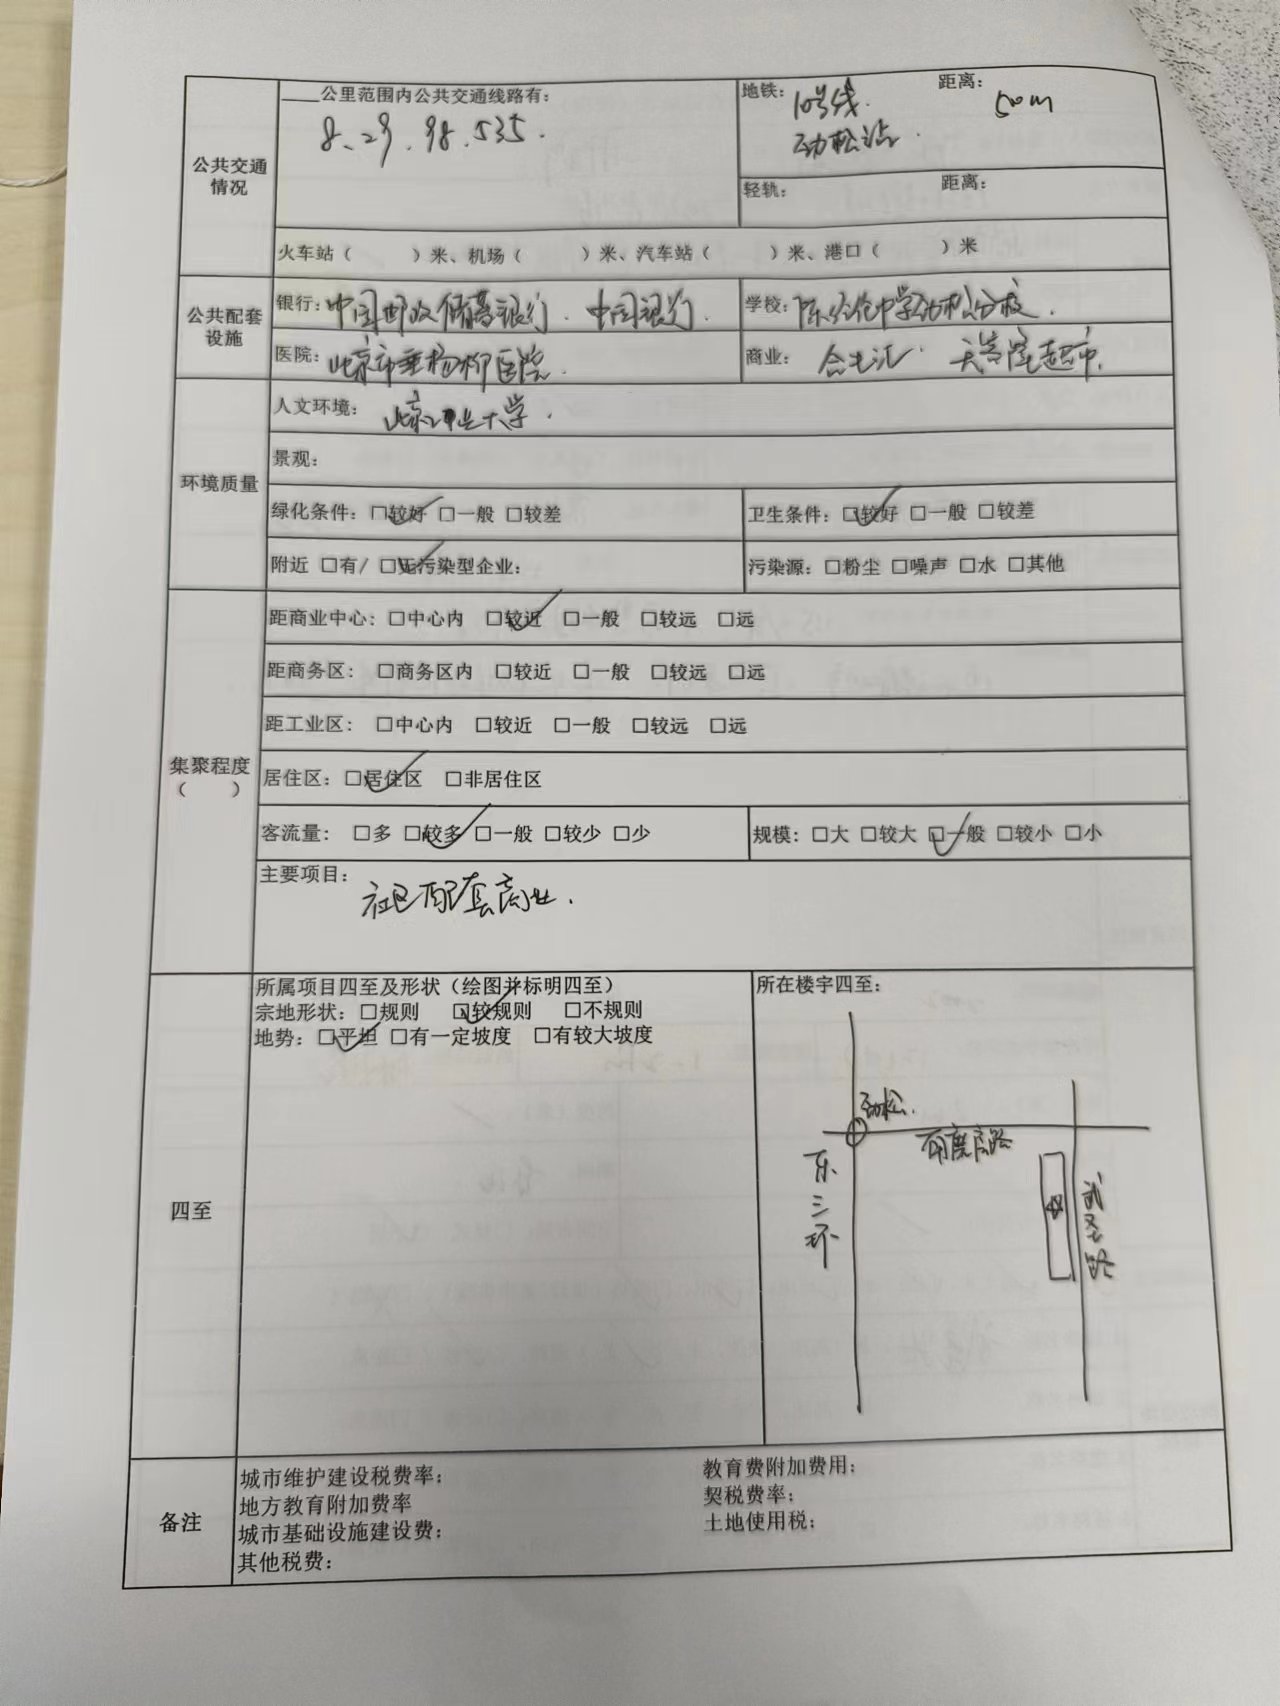 ____公里范围内公共交通线路有：
8、29、98、535.
地铁：10号线. 距离：50m
劲松站.
公共交通
情况
轻轨： 距离：
火车站（ ）米、机场（ ）米、汽车站（ ）米、港口（ ）米
公共配套
设施
银行：中国邮政储蓄银行、中国银行.
学校：陈经纶中学劲松分校.
医院：北京市垂杨柳医院.
商业：合生汇、天客隆超市.
环境质量
人文环境：北京工业大学.
景观：
绿化条件：☑较好 □一般 □较差
卫生条件：☑较好 □一般 □较差
附近 □有/ ☑无污染型企业：
污染源：□粉尘 □噪声 □水 □其他
集聚程度
（ ）
距商业中心：□中心内 ☑较近 □一般 □较远 □远
距商务区： □商务区内 □较近 □一般 □较远 □远
距工业区： □中心内 □较近 □一般 □较远 □远
居住区：☑居住区 □非居住区
客流量： □多 ☑较多 □一般 □较少 □少
规模：□大 □较大 ☑一般 □较小 □小
主要项目：
社区配套商业.
四至
所属项目四至及形状（绘图并标明四至）
宗地形状：□规则 ☑较规则 □不规则
地势：☑平坦 □有一定坡度 □有较大坡度
所在楼宇四至：
劲松.
东三环
武圣路
备注
城市维护建设税费率：
教育费附加费用：
地方教育附加费率
契税费率：
城市基础设施建设费：
土地使用税：
其他税费：